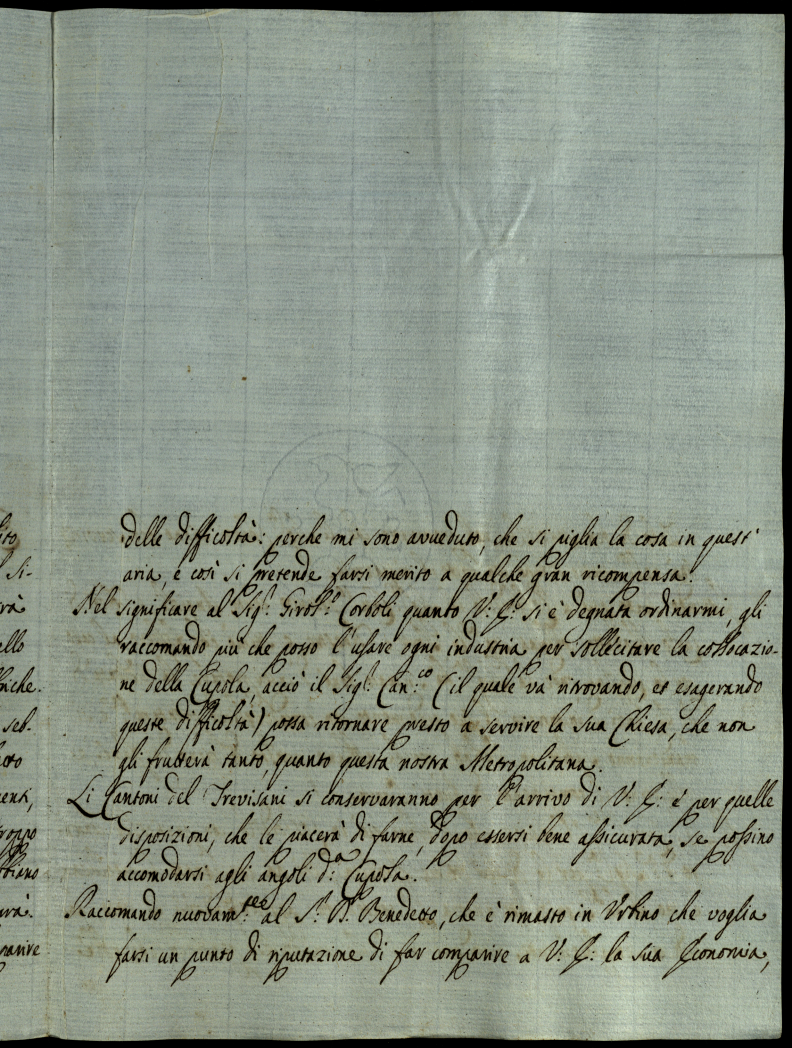 delle difficoltà: perche mi sono avveduto, che si piglia la cosa in quest'
aria, e così si pretende farsi merito a qualche gran ricompensa.
Nel significare al Sig.r Girol.o Cordoli quanto V: E: si è degnata ordinarmi, gli
raccomando più che posso l'usare ogni industria per sollecitare la collocazio-
ne della Cupola, acciò il Sig.r Can.co (il quale và ritrovando, et esagerando
queste difficoltà) possa ritornare presto a servire la sua Chiesa, che non
gli frutterà tanto, quanto questa nostra Metropolitana.
Li Cantoni del Trevisani si conservaranno per l'arrivo di V: E: e per quelle
disposizioni, che le piacerà di farne, dopo essersi bene assicurata, se possino
accomodarsi agli angoli d.a Cupola.
Raccomando nuovam.te al S.r D. Benedetto, che è rimasto in Urbino che voglia
farsi un punto di riputazione di far comparire a V: E: la sua Economia,
ito
l si-
rà
ello
fiche.
seb-
noto
enti,
troppo
bbiano
urà.
parire